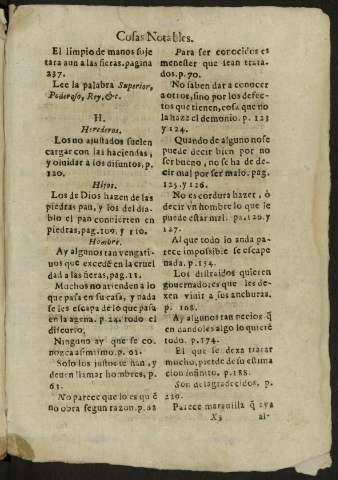 Cosas Notables.
El limpio de manos suje
tara aun a las fieras. pagina
237.
Lee la palabra Superior,
Poderoso, Rey, &c.
H.
Herederos.
Los no ajustados suelen
cargar con las haciendas,
y olvidar a los difuntos. p.
120.
Hijos.
Los de Dios hazen de las
piedras pan, y los del dia-
blo el pan convierten en
piedras, pag. 109. y 110.
Hombre.
Ay algunos tan vengati-
uos que excedē en la cruel
dad a las fieras, pag. 11.
Muchos no atienden a lo
que pasa en su casa, y nada
se les escapa de lo que pasa
en la agena. p. 24. todo el
discurso.
Ninguno ay que se co-
nozca a si mismo. p. 62.
Solo los justos se han, y
deuen llamar hombres, p.
63.
No parece que lo es quē
no obra segun razon. p. 62
Para ser conocidos es
menester que sean trata-
dos. p. 70.
No saben dar a conocer
a otros, sino por los defec-
tos que tienen, cosa que no
la haze el demonio. p. 123
y 124.
Quando de alguno no se
puede decir bien por no
ser bueno, no se ha de de-
cir mal por ser malo. pag.
125. y 126.
No es cordura hazer, ò
decir vn hombre lo que le
puede estar mal. pa. 120. y
127.
Al que todo lo anda pa-
rece impossible se escape
nada. p. 154.
Los distraidos quieren
gouernadores que les de-
xen viuir a sus anchuras.
p. 168.
Ay algunos tan necios q̃
en dandoles algo lo quierē
todo. p. 174.
El que se dexa tratar
mucho, pierde de su estima
cion infinito. p. 188.
Son desagradecidos. p.
229.
Parece marauilla q̃ aya
X3 al-